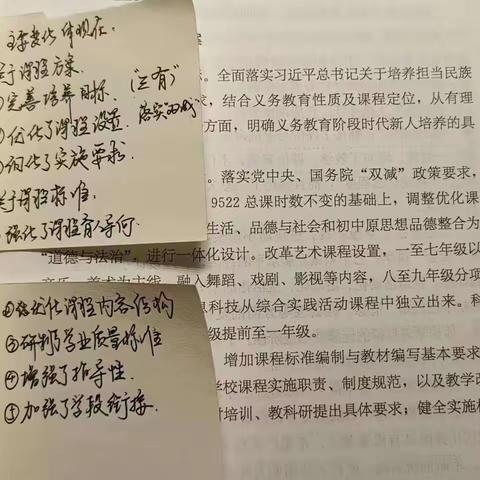 主要变化体现在:
关于课程方案.
①完善培养目标. (“三有”)
②优化了课程设置. 落实“双减”
③细化了实施要求.
关于课程标准.
①强化了课程育人导向
②优化课程内容结构
③研制了学业质量标准
④增强了指导性.
⑤加强了学段衔接.
案
。全面落实习近平总书记关于培养担当民族
求，结合义务教育性质及课程定位，从有理
方面，明确义务教育阶段时代新人培养的具
。落实党中央、国务院“双减”政策要求，
9522总课时数不变的基础上，调整优化课
生活、品德与社会和初中原思想品德整合为
“道德与法治”，进行一体化设计。改革艺术课程设置，一至七年级以
音乐、美术为主线，融入舞蹈、戏剧、影视等内容，八至九年级分项
息科技从综合实践活动课程中独立出来。科
级提前至一年级。
增加课程标准编制与教材编写基本要求
学校课程实施职责、制度规范，以及教学改
对培训、教科研提出具体要求；健全实施机